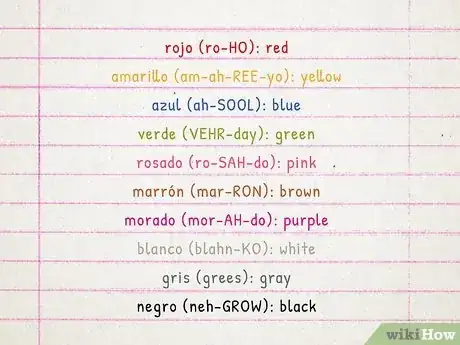 rojo (ro-HO): red
amarillo (am-ah-REE-yo): yellow
azul (ah-SOOL): blue
verde (VEHR-day): green
rosado (ro-SAH-do): pink
marrón (mar-RON): brown
morado (mor-AH-do): purple
blanco (blahn-KO): white
gris (grees): gray
negro (neh-GROW): black
wikiHow